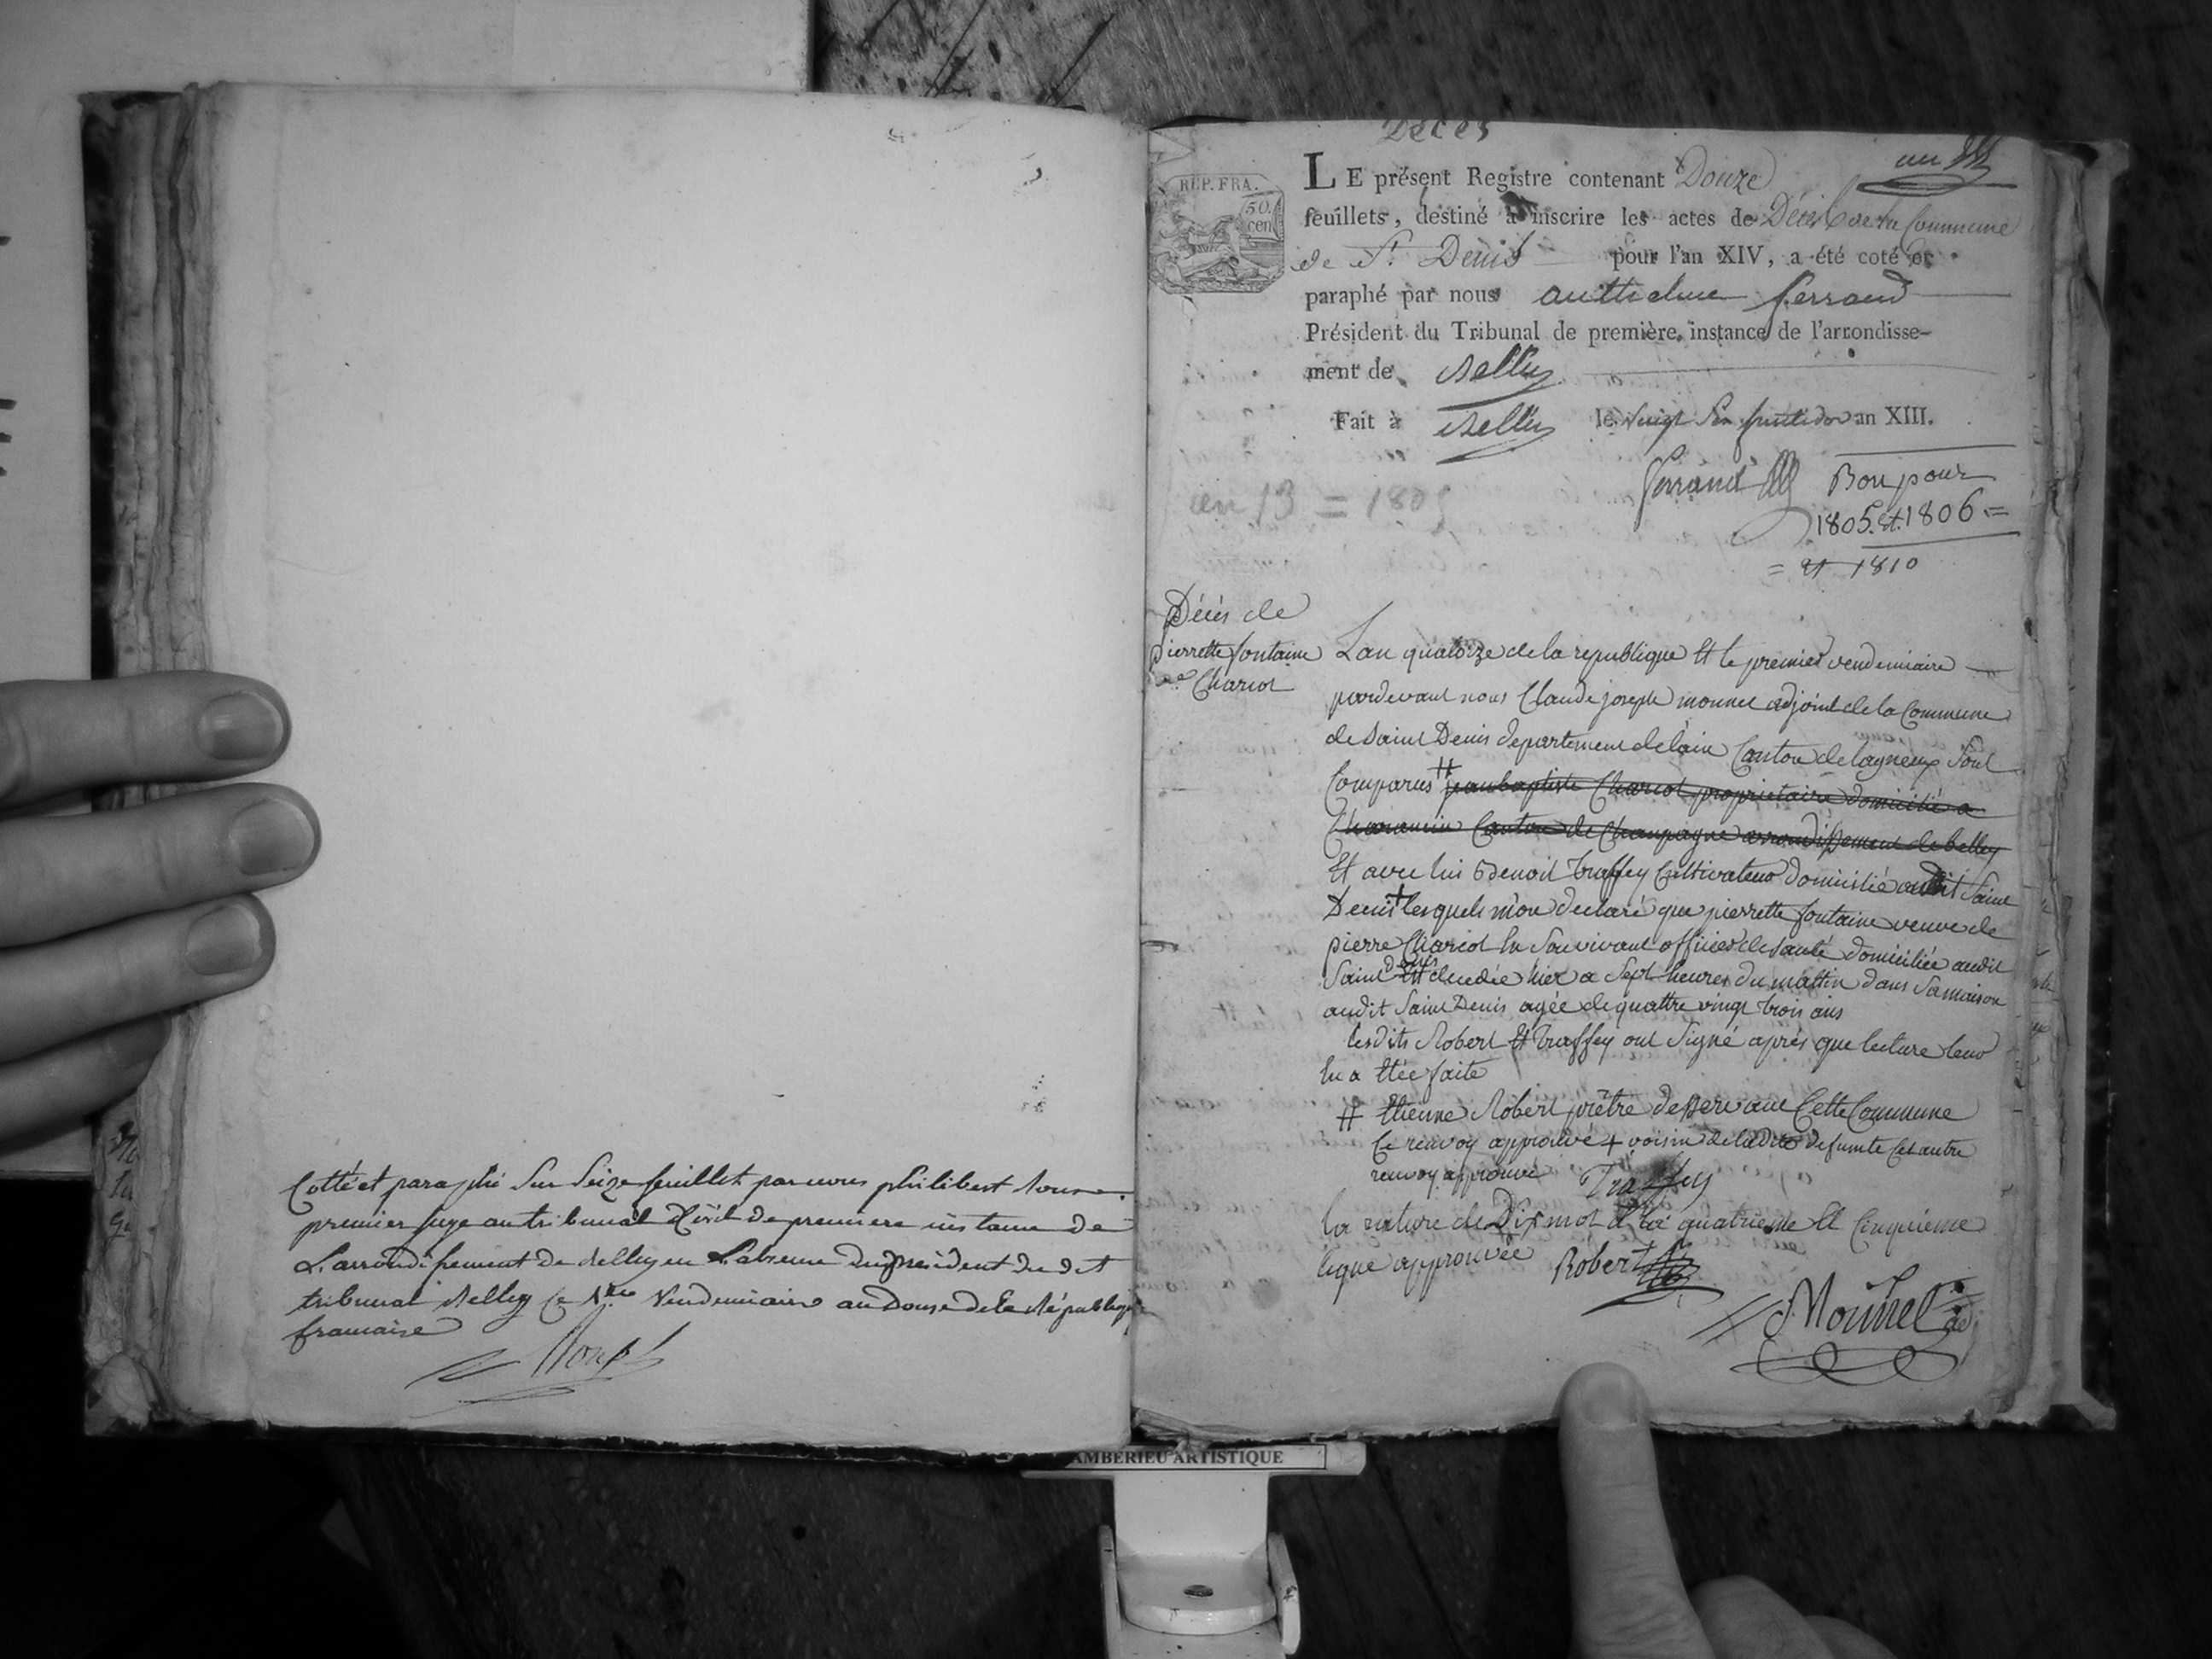 Cotté et paraphé Sur Seize feuillets par nous philibert
premier juge au tribunal Civil de premiere instance de
L'arrondissement de Belley en L'absence du président du dit
tribunal Belley ce Vendemiaire an Douze de la Républiq
francaise
Décès
an
REP. FRA.
50
cen
LE présent Registre contenant Douze
feuillets, destiné à inscrire les actes de Décès de la Commune
de St. Denis pour l'an XIV, a été coté et
paraphé par nous anthelme ferrand
Président du Tribunal de première instance de l'arrondisse-
ment de Belley
Fait à Belley le vingt Six fructidor an XIII.
ferrand
Bon pour
1805. et. 1806 =
= et 1810
an 13 = 1805
Décès de
pierrette fontaine
ve Chariot
Lan quatorze de la republique Et le premier vendemiaire
pardevant nous Claude joseph monnet adjoint de la Commune
de Saint Denis departement de lain Canton de lagneux Sont
Comparus # jean baptiste Chariot proprietaire domicilié a
Charancin Canton de Champagne arrondissement de belley
Et avec lui Benoit Traffey Cultivateur domicilié audit Saint
Denis + lesquels m'on declaré que pierrette fontaine veuve de
pierre Chariot En Son vivant officier de Santé domiciliée audit
Saint denis Est decedée hier a Sept heures du mattin dans Sa maison
audit Saint Denis agée de quattre vingt trois ans
lesdits Robert Et Traffey ont Signé après que lecture leur
En a Etée faite
# Etienne Robert prêtre desservant Cette Commune
Ce renvoy approuvé + voisin de ladite defunte Cet autre
renvoy approuvé Traffey
la rature de Dix mot à la quatrieme Et Cinquieme
ligne approuvée Robert
Monnet adj
AMBERIEU ARTISTIQUE